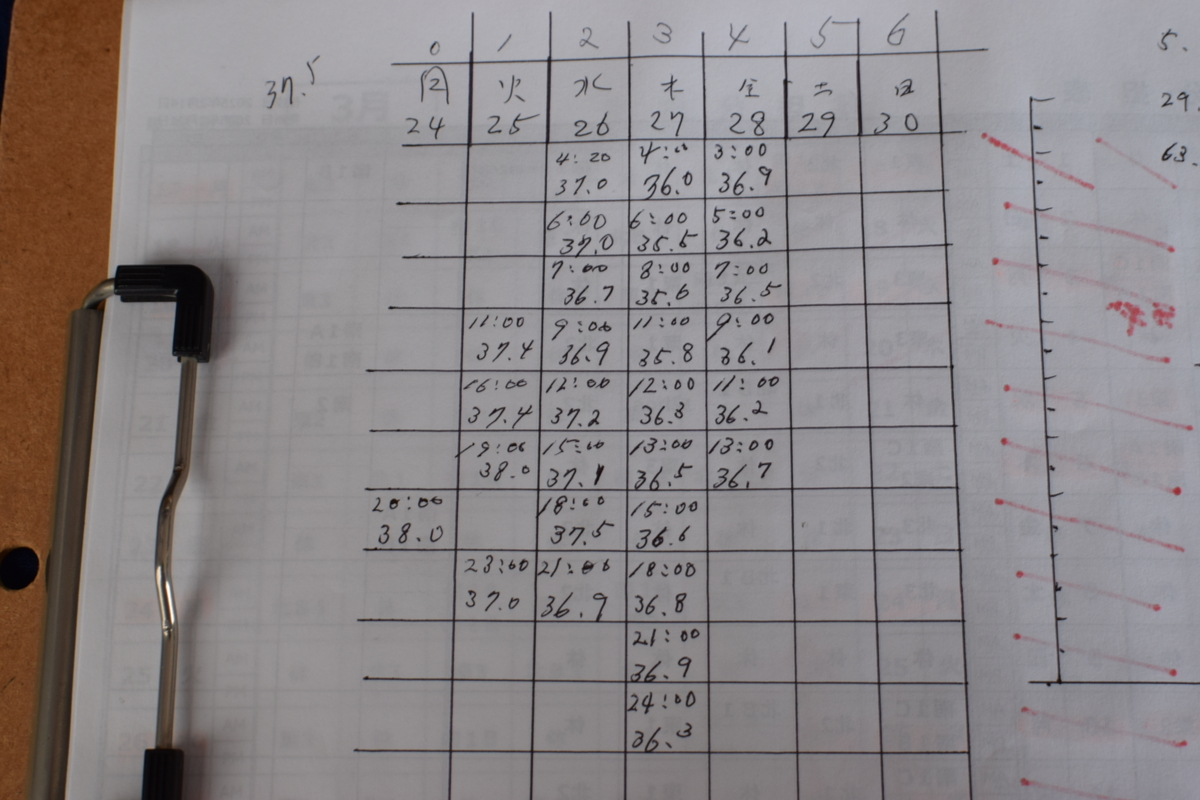 37.5
0 1 2 3 4 5 6
月 火 水 木 金 土 日
24 25 26 27 28 29 30
4:20 4:00 3:00
37.0 36.0 36.9
6:00 6:00 5:00
37.0 35.5 36.2
7:00 8:00 7:00
36.7 35.6 36.5
11:00 9:00 11:00 9:00
37.4 36.9 35.8 36.1
16:00 12:00 12:00 11:00
37.4 37.2 36.3 36.2
19:00 15:00 13:00 13:00
38.0 37.1 36.5 36.7
20:00 18:00 15:00
38.0 37.5 36.6
23:00 21:00 18:00
37.0 36.9 36.8
21:00
36.9
24:00
36.3
5.
29
63.